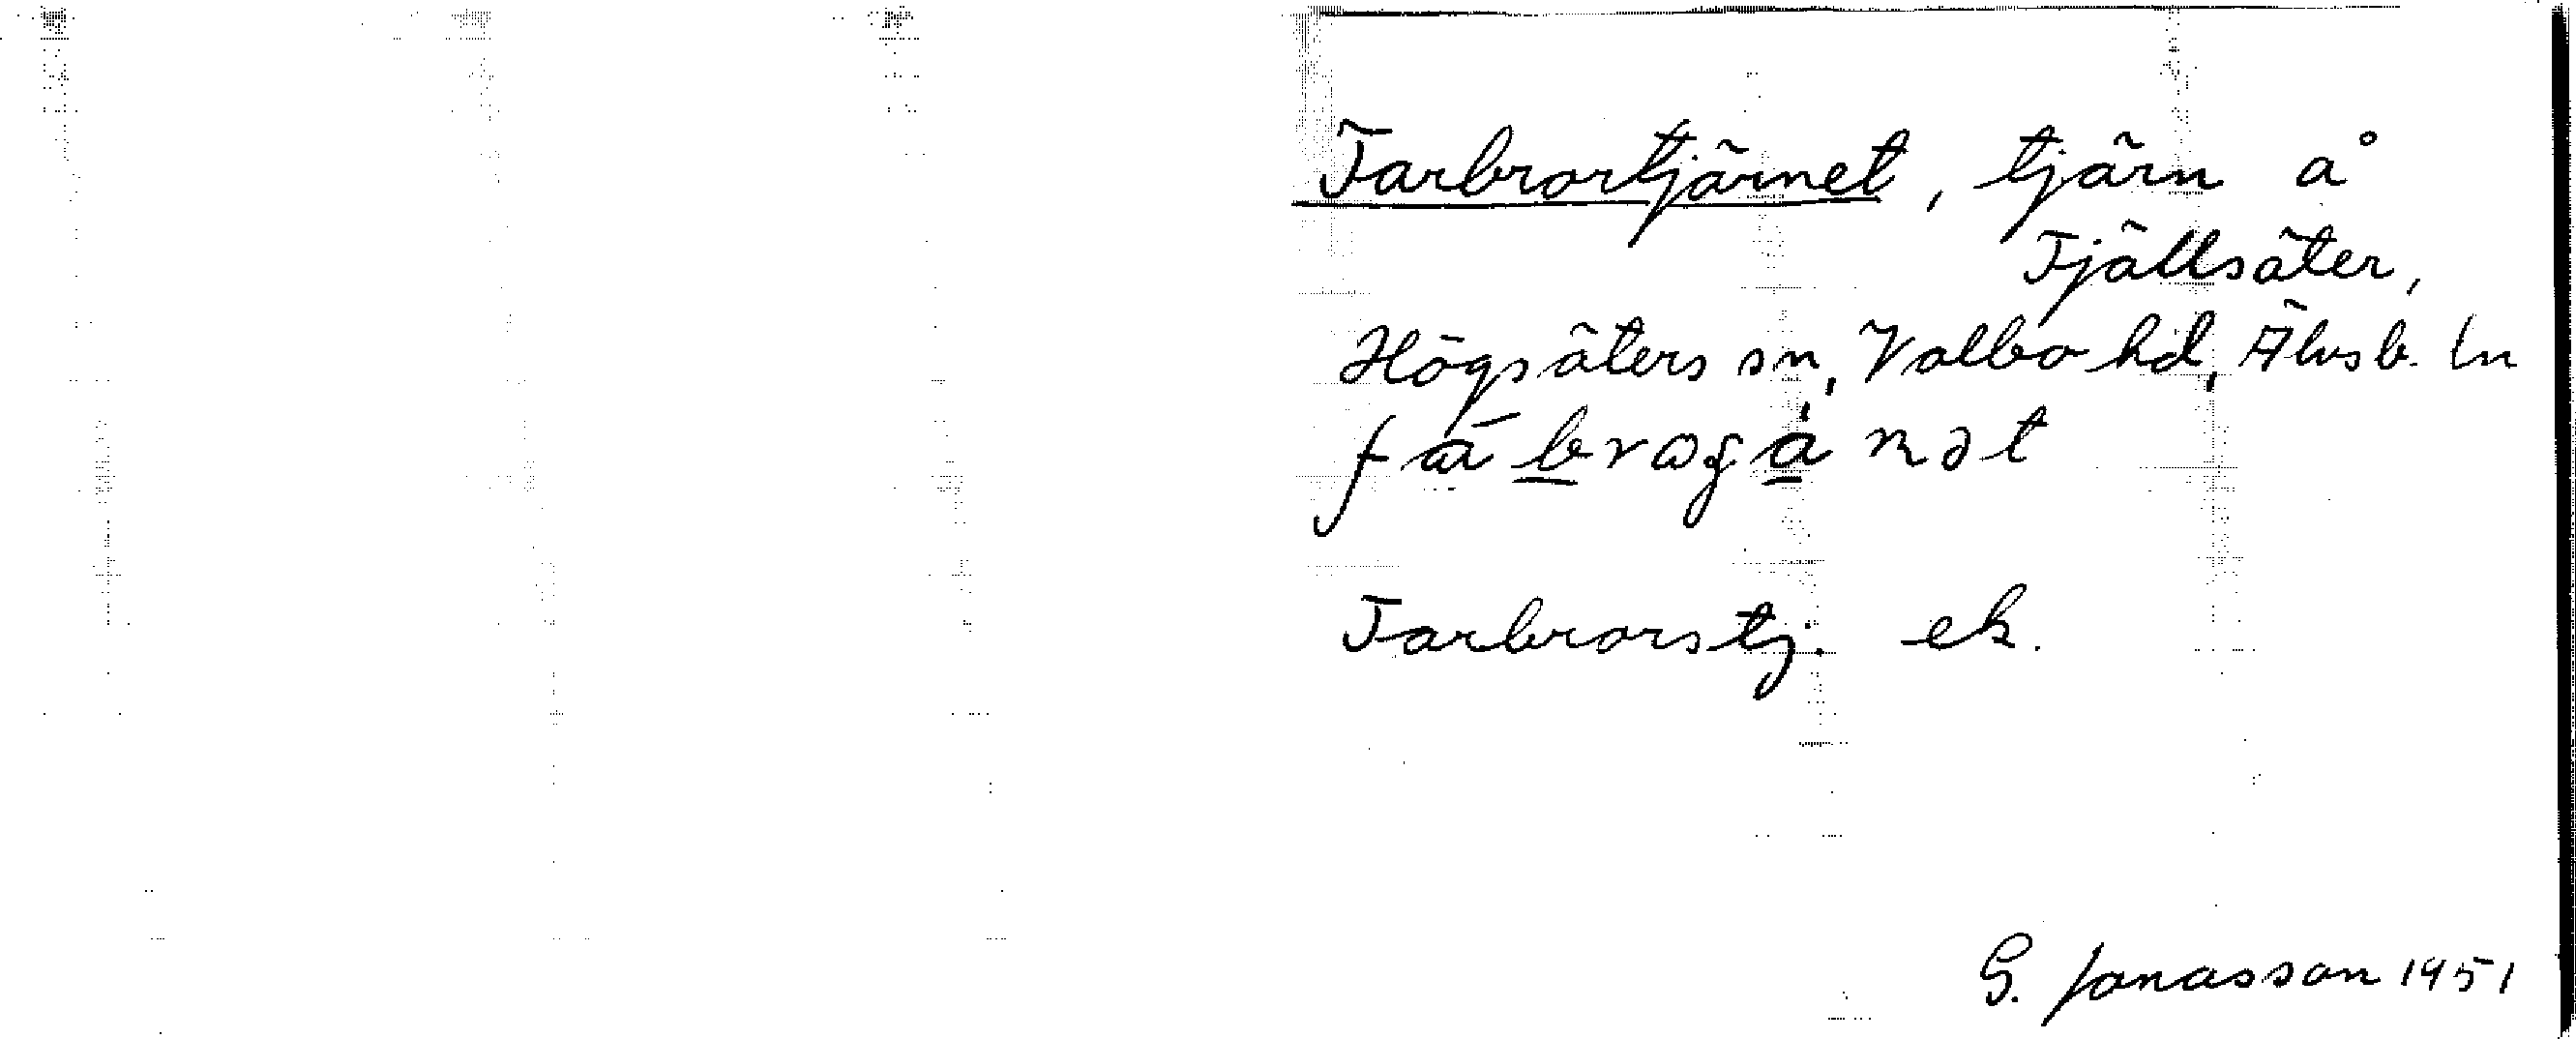 Farbrortjärnet, tjärn å
Fjällsäter,
Högsäters sn, Valbo hd, Älvsb. ln
Farbrorstj. ek.
G. Jonasson 1951